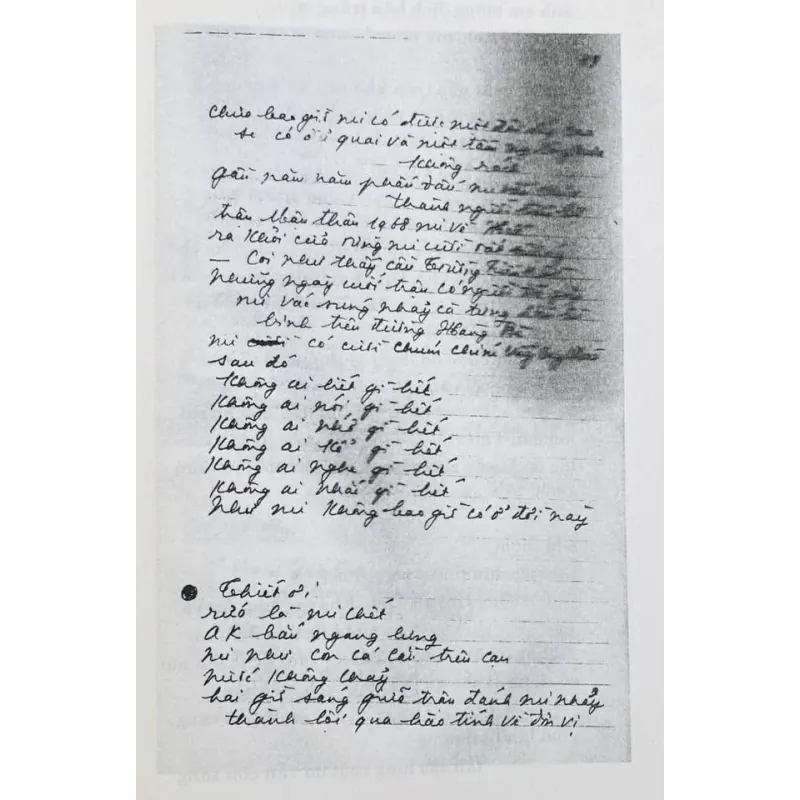 Chưa bao giờ mi có được một đôi dép cao
su có đủ quai và một tấm ny lông
không rách
gần năm năm phấn đấu mi vẫn chưa
thành người
trận Mậu Thân 1968 mi về Huế
ra khỏi cửa rừng mi cười rất
— Coi như thấy cầu Trường Tiền
những ngày cuối trận có người
mi vác súng nhảy cà tưng
bình trên đường Hàng Bè
mi có cười chúm chím
sau đó
Không ai biết gì hết
Không ai nói gì hết
Không ai nhớ gì hết
Không ai kể gì hết
Không ai nghe gì hết
Không ai nhắc gì hết
như mi không bao giờ có ở đời này
Thiết ơi
rứa là mi chết
AK bắn ngang lưng
mi như con cá trên cạn
không chảy
hai giờ sáng giữa trận đánh mi nhảy
thành lội qua hào tính về đơn vị